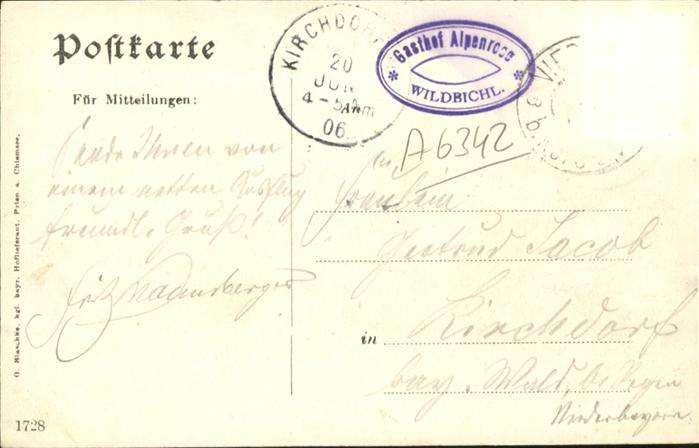 Postkarte
Für Mitteilungen:
Sende Ihnen von
einem netten Ausflug
freundl. Gruß!
Fritz
KIRCHDORF
20
JUN
4-5
06
Gasthof Alpenrose
* *
WILDBICHL.
A 6342
Fräulein
Gertrud Jacob
in Kirchdorf
bay. Wald, b. Regen
Niederbayern
kgl. bayr. Hoflieferant, Prien a. Chiemsee.
1728